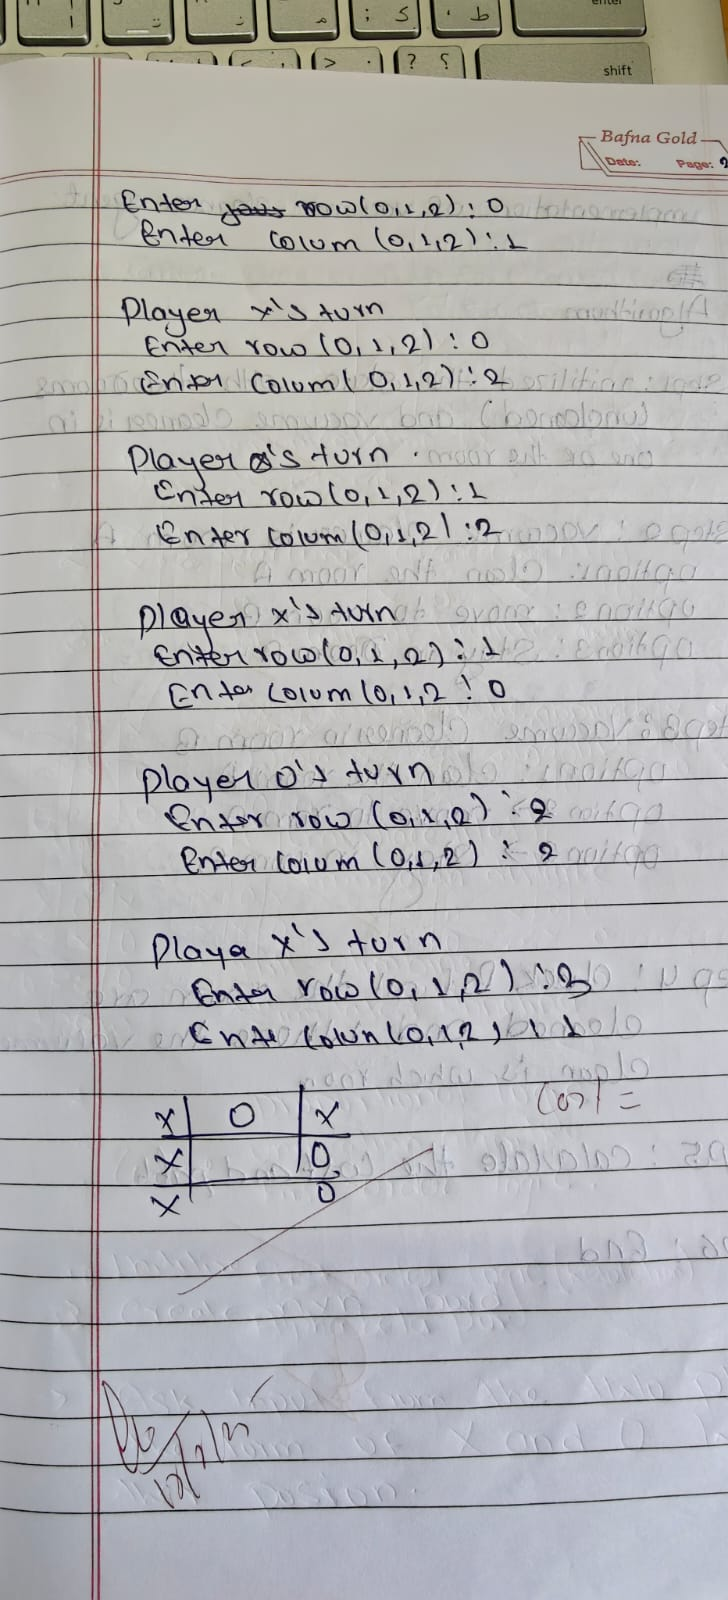 enter
shift
Bafna Gold
Date:
Page:
Enter row(0,1,2): 0
Enter colum (0,1,2): 1
Player x's turn
Enter row (0,1,2): 0
Enter colum(0,1,2): 2
Player o's turn.
Enter row(0,1,2): 1
Enter colum(0,1,2): 2
Player x's turn
Enter row(0,1,2): 1
Enter colum(0,1,2: 0
Player o's turn
Enter row (0,1,2): 2
Enter colum (0,1,2): 2
Playa x's turn
Enter row(0,1,2):
(0,1,2) : 1
X O X
X O
X O